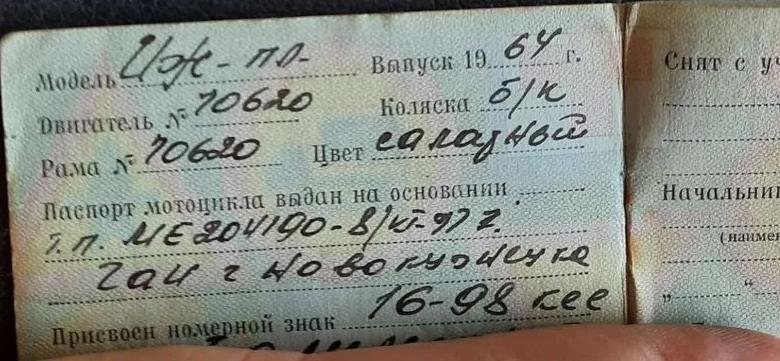 Модель Иж-пл- Выпуск 1964 г.
Двигатель № 70620 Коляска б/к
Рама № 70620 Цвет салатный
Паспорт мотоцикла выдан на основании
т.п. МЕ204190-8/VI-97г.
ГАИ г Новокузнецка
Присвоен номерной знак 16-98 кее
Снят с уч
Начальник
(наимен
„ “